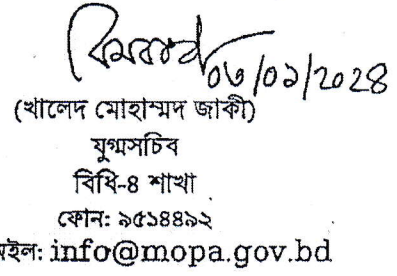 ০৩/০১/2024
(খালেদ মোহাম্মদ জাকী)
যুগ্মসচিব
বিধি-৪ শাখা
ফোন: ৯৫১৪৪৯২
মইল: info@mopa.gov.bd